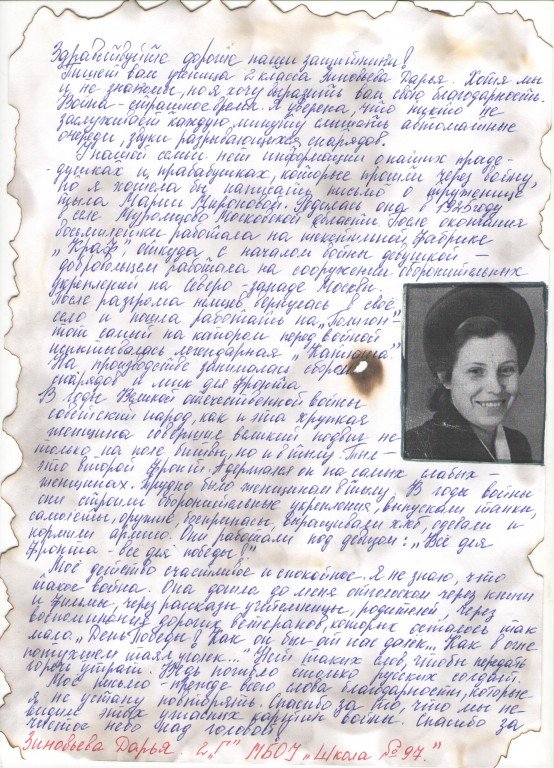 Здравствуйте дорогие наши защитники!
Пишет вам ученица 2 класса Зиновьева Дарья. Хотя мы
и не знакомы, но я хочу выразить вам свою благодарность.
Война - страшное дело. Я уверена, что никто не
заслуживает каждую минуту слышать автоматные
очереди, звуки разрывающихся снарядов.
У нашей семьи нет информации о наших праде-
душках и прабабушках, которые прошли через войну,
но я хотела бы написать письмо о труженице
тыла Марии Мироновой. Родилась она в 1925 году
в селе Муромцево Московской области. После окончания
восьмилетки работала на текстильной фабрике
"КРАФ", откуда с началом войны девушкой -
добровольцем работала на сооружении оборонительных
укреплений на Северо-западе Москвы.
После разгрома немцев вернулась в своё
село и пошла работать на "Полигон" -
тот самый на котором перед войной
испытывалась легендарная "Катюша".
На производстве занималась сборкой
снарядов и мин для фронта
В годы Великой отечественной войны
советский народ, как и эта хрупкая
женщина совершил великий подвиг не
только на поле битвы, но и в тылу. Тыл -
это второй фронт. А держался он на самых слабых -
женщинах. Трудно было женщинам в тылу. В годы войны
они строили оборонительные укрепления, выпускали танки,
самолёты, оружие, боеприпасы, выращивали хлеб, одевали и
кормили армию. Они работали под девизом: "Всё для
фронта - все для победы!"
Моё детство счастливое и спокойное. Я не знаю, что
такое война. Она дошла до меня отголоском через книги
и фильмы, через рассказы учительницы, родителей, через
воспоминания дорогих ветеранов, которых осталось так
мало. "День Победы! Как он был от нас далек... Как в огне
потухшем таял уголек..." Нет таких слов, чтобы передать
горечь утрат. Ведь погибло столько русских солдат.
Моё письмо - прежде всего слова благодарности, которые
я не устану повторять. Спасибо за то, что мы не
видим этих ужасных картин войны. Спасибо за
чистое небо над головой!
Зиновьева Дарья. 2 "Г" МБОУ "Школа № 97."